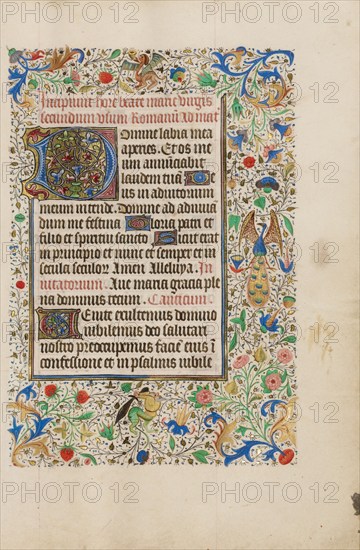 Incipiunt hore beate marie virgis
secundum usum Romanū Ad mat
Domine labia mea
aperies. Et os me
um annūciabit
laudem tuā. De
us in adiutorium
meum intende. Domine ad adiuuā
dum me festina Gloria patri et
filio et spiritui sancto Sicut erat
in principio et nunc et semper et in
secula seculor Amen Alleluya. In
uitatorium. Aue maria gracia ple
na dominus tecum. Canticum
Uenite exultemus domino
iubilemus deo salutari
nostro preocupemus faciē eius ī
confessione et in psalmis iubile
PHOTO 12